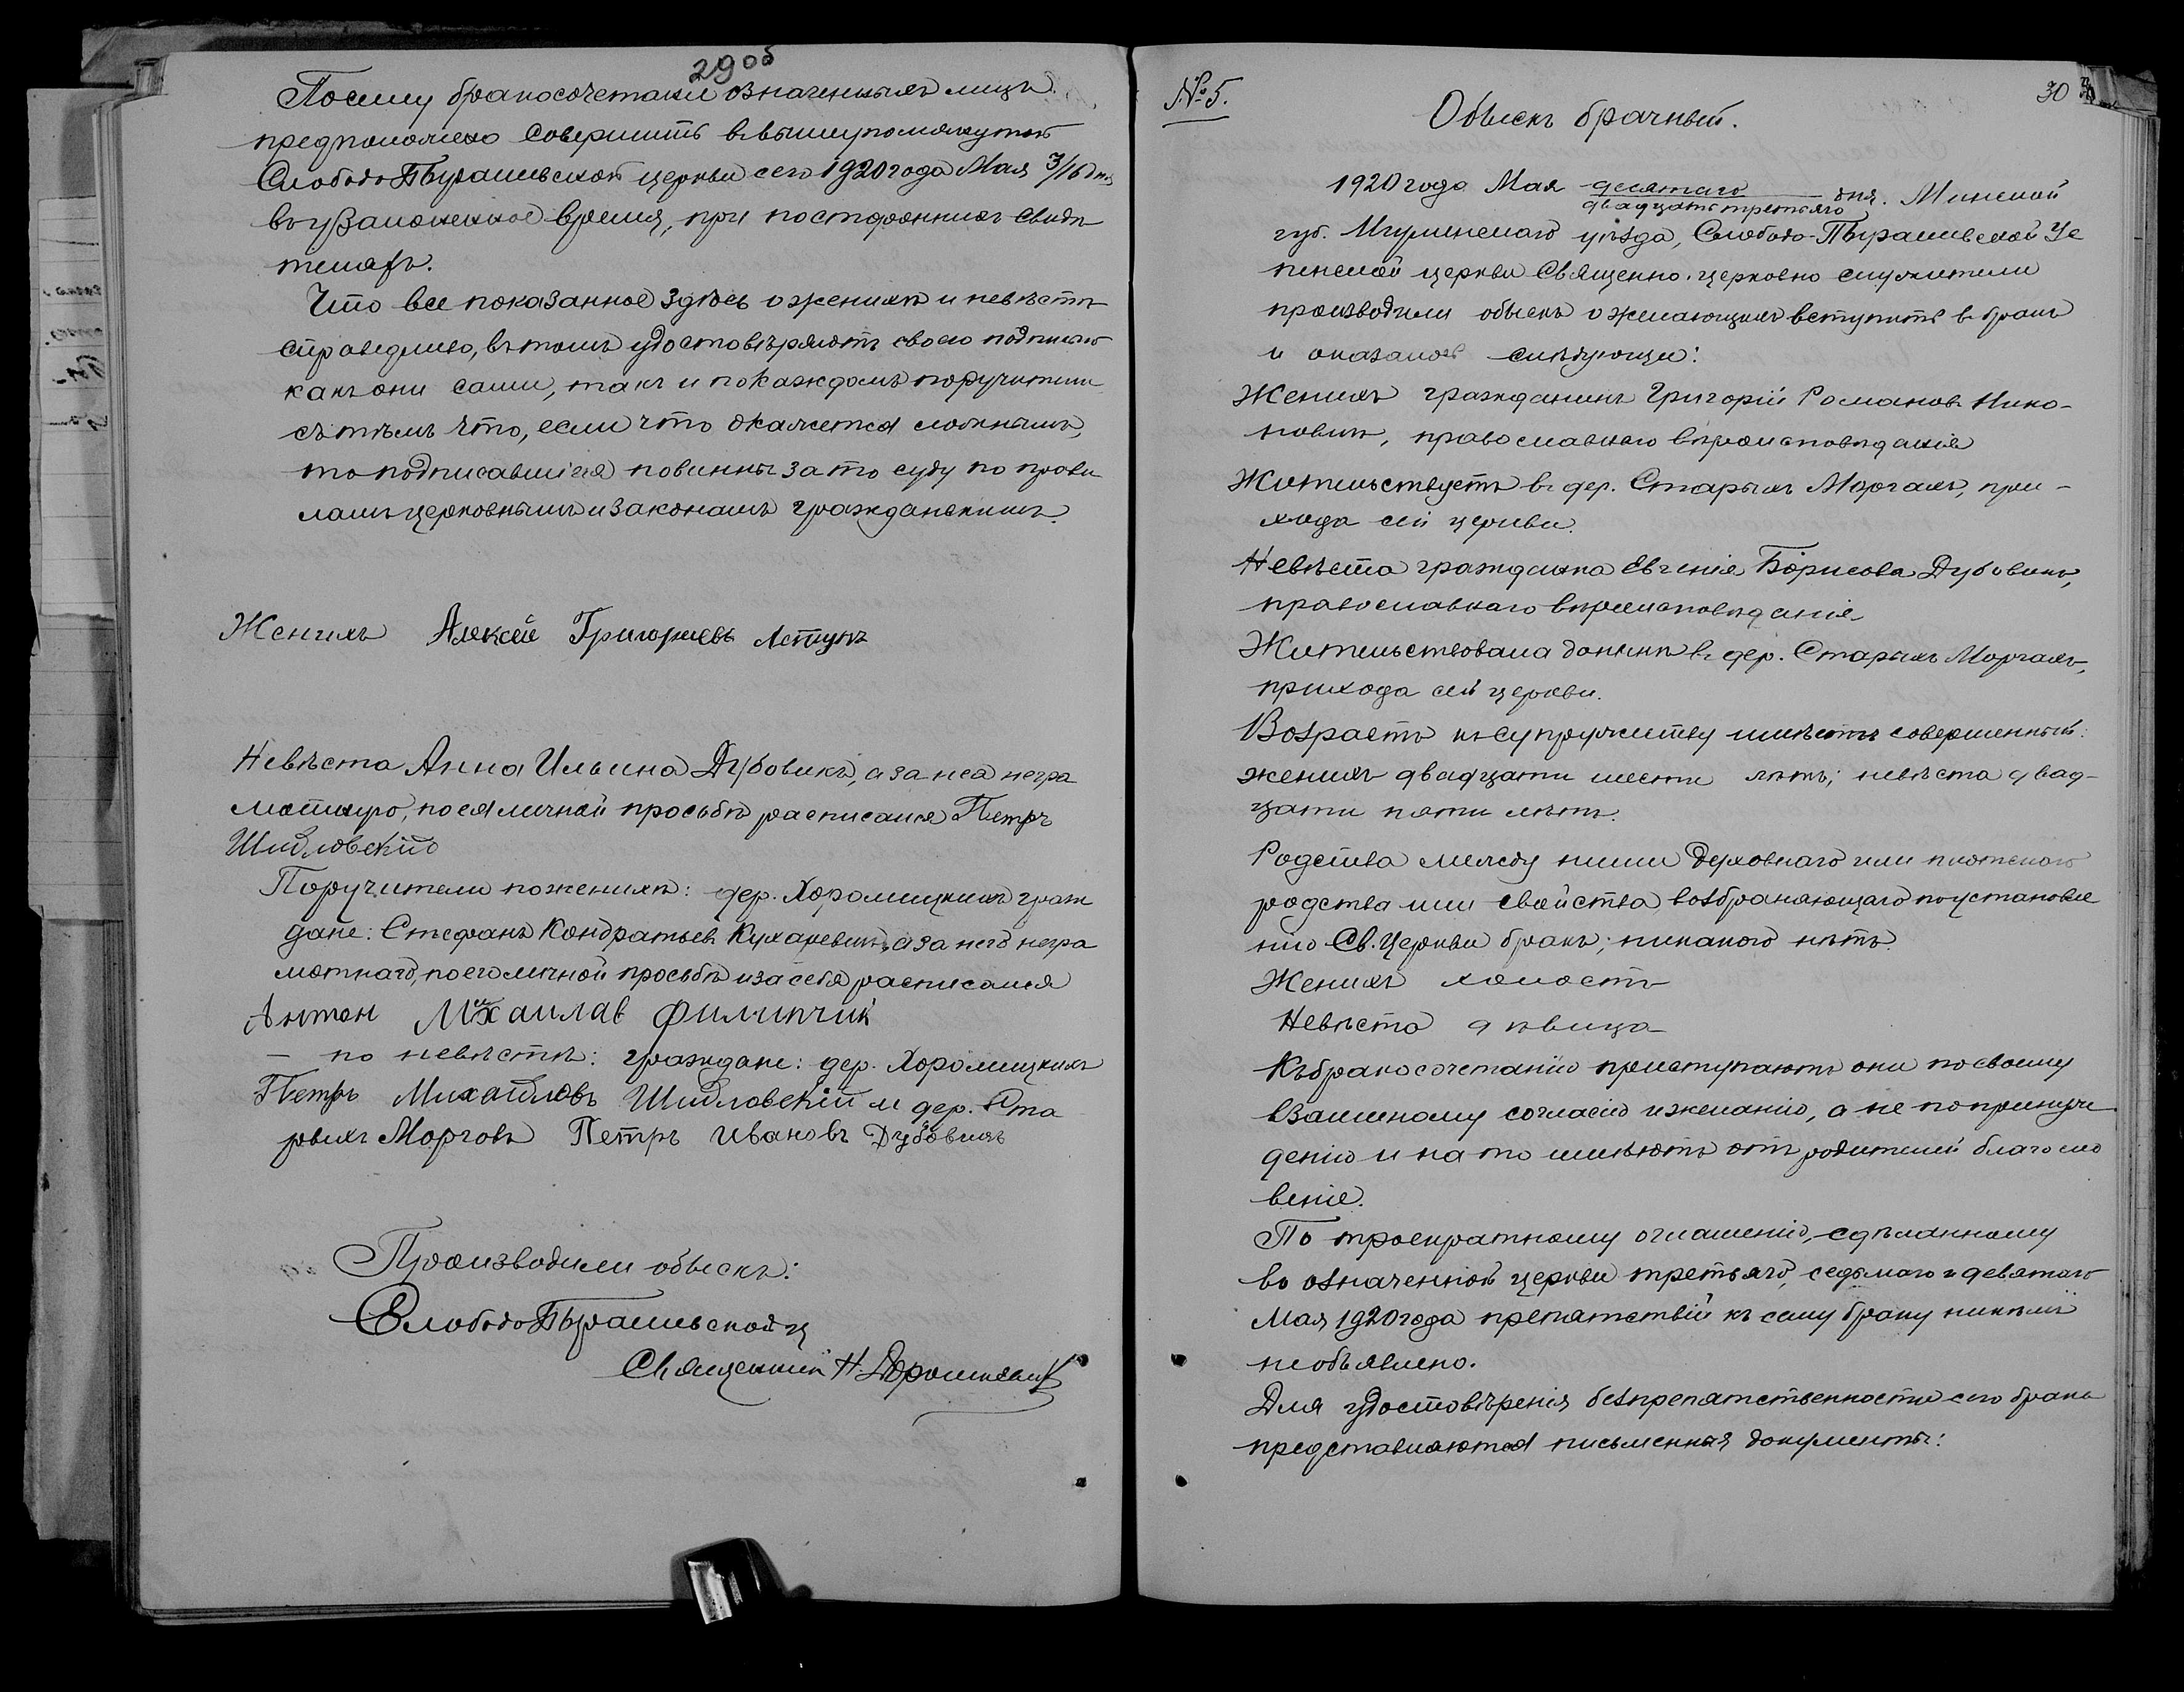 29об
Посему бракосочетаніе означенныхъ лицъ
предположено совершить въ вышеупомянутой
Слободо Пырашевской церкви сего 1920 года Мая 3/16 дня
въ узаконенное время, при постороннихъ свидѣ
теляхъ.
Что все показанное здѣсь о женихѣ и невѣстѣ
справедливо, въ томъ удостовѣряютъ своею подписью
какъ они сами, такъ и по каждомъ поручители
съ тѣмъ что, если что окажется ложнымъ,
то подписавшіеся повинны за то суду по прави
ламъ церковнымъ и законамъ гражданскимъ.
Женихъ Алексей Григорьевъ
Невѣста Анна Ильина Дубовикъ, а за неа негра
мотную, по ея личной просьбѣ расписался Петръ
Шидловскій
Поручители по женихѣ: дер. Хоромицкихъ граж
дане: Стефанъ Кондратьевъ Кухаревичъ, а за него негра
мотнаго, по его личной просьбѣ и за себя расписался
Антон Михаилав Филипчик
— по невѣстѣ: граждане: дер. Хоромицкихъ
Петръ Михайловъ Шидловскій и дер. Ста
рыхъ Морговъ Петръ Ивановъ Дубовикъ
Производили обыскъ:
Слободо Пырашевской ц
Священникъ Н.
№ 5.
30
Обыскъ брачный.
1920 года Мая десятаго дня. Минской
двадцать третьяго
губ. Игуменскаго уѣзда, Слободо-Пырашевской Ус
пенской церкви Священно-церковно служители
производили обыскъ о желающихъ вступить въ бракъ
и оказалось слѣдующее:
Женихъ гражданинъ Григорій Романовъ Нико-
новичъ, православнаго вѣроисповѣданія
Жительствуетъ въ дер. Старыхъ Моргахъ, при-
хода сей церкви.
Невѣста гражданка Евгенія Борисова Дубовикъ,
православнаго вѣроисповѣданія
Жительствовала донынѣ въ дер. Старыхъ Моргахъ,
прихода сей церкви.
Возрастъ къ супружеству имѣютъ совершенный:
женихъ двадцати шести лѣтъ; невѣста двад-
цати пяти лѣтъ.
Родства между ними духовнаго или плотскаго
родства или свойства, возбраняющаго по установле
нію Св. Церкви бракъ; никакого нѣтъ.
Женихъ холостъ
Невѣста дѣвица
Къ бракосочетанію приступаютъ они по своему
взаимному согласію и желанію, а не по принужде
денію и на то имѣютъ отъ родителей благосло
веніе.
По троекратному оглашенію, сдѣланному
во означенной церкви третьяго, седьмаго и девятаго
Мая 1920 года препятствій къ сему браку никѣмъ
не объявлено.
Для удостовѣренія безпрепятственности сего брака
представляются письменныя документы: